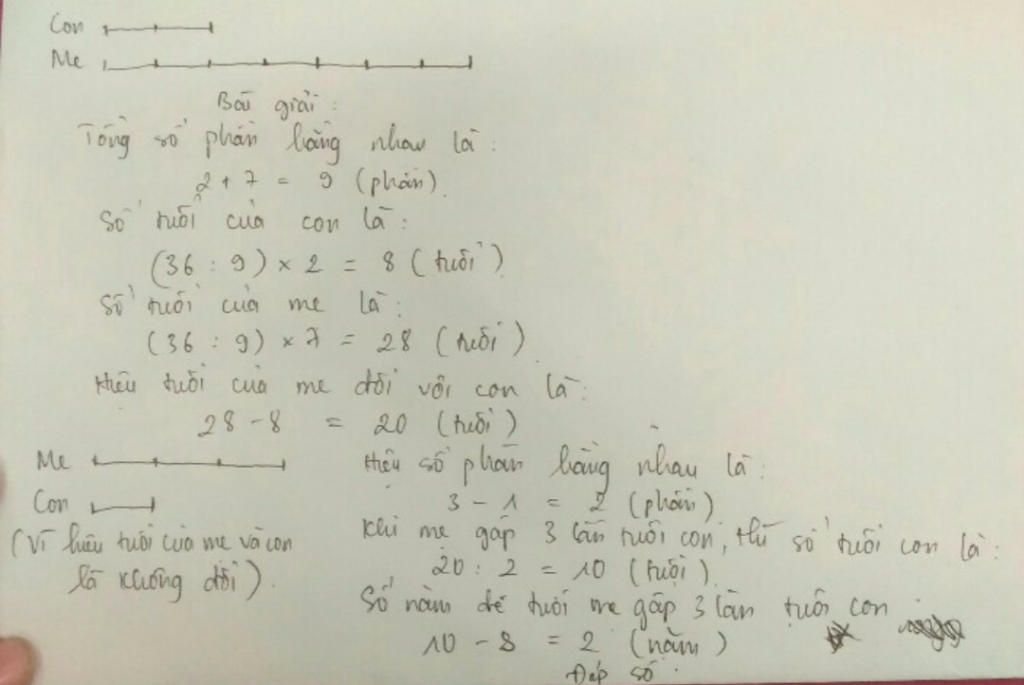 Con
Mẹ
Bài giải:
Tổng số phần bằng nhau là:
2 + 7 = 9 (phần)
Số tuổi của con là:
(36 : 9) × 2 = 8 (tuổi)
Số tuổi của mẹ là:
(36 : 9) × 7 = 28 (tuổi)
Hiệu tuổi của mẹ đối với con là:
28 - 8 = 20 (tuổi)
Mẹ
Con
(Vì hiệu tuổi của mẹ và con
là không đổi).
Hiệu số phần bằng nhau là:
3 - 1 = 2 (phần)
Khi mẹ gấp 3 lần tuổi con, thì số tuổi con là:
20 : 2 = 10 (tuổi)
Số năm để tuổi mẹ gấp 3 lần tuổi con
10 - 8 = 2 (năm)
Đáp số: